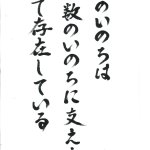 のいのちは
数のいのちに支え
て存在している